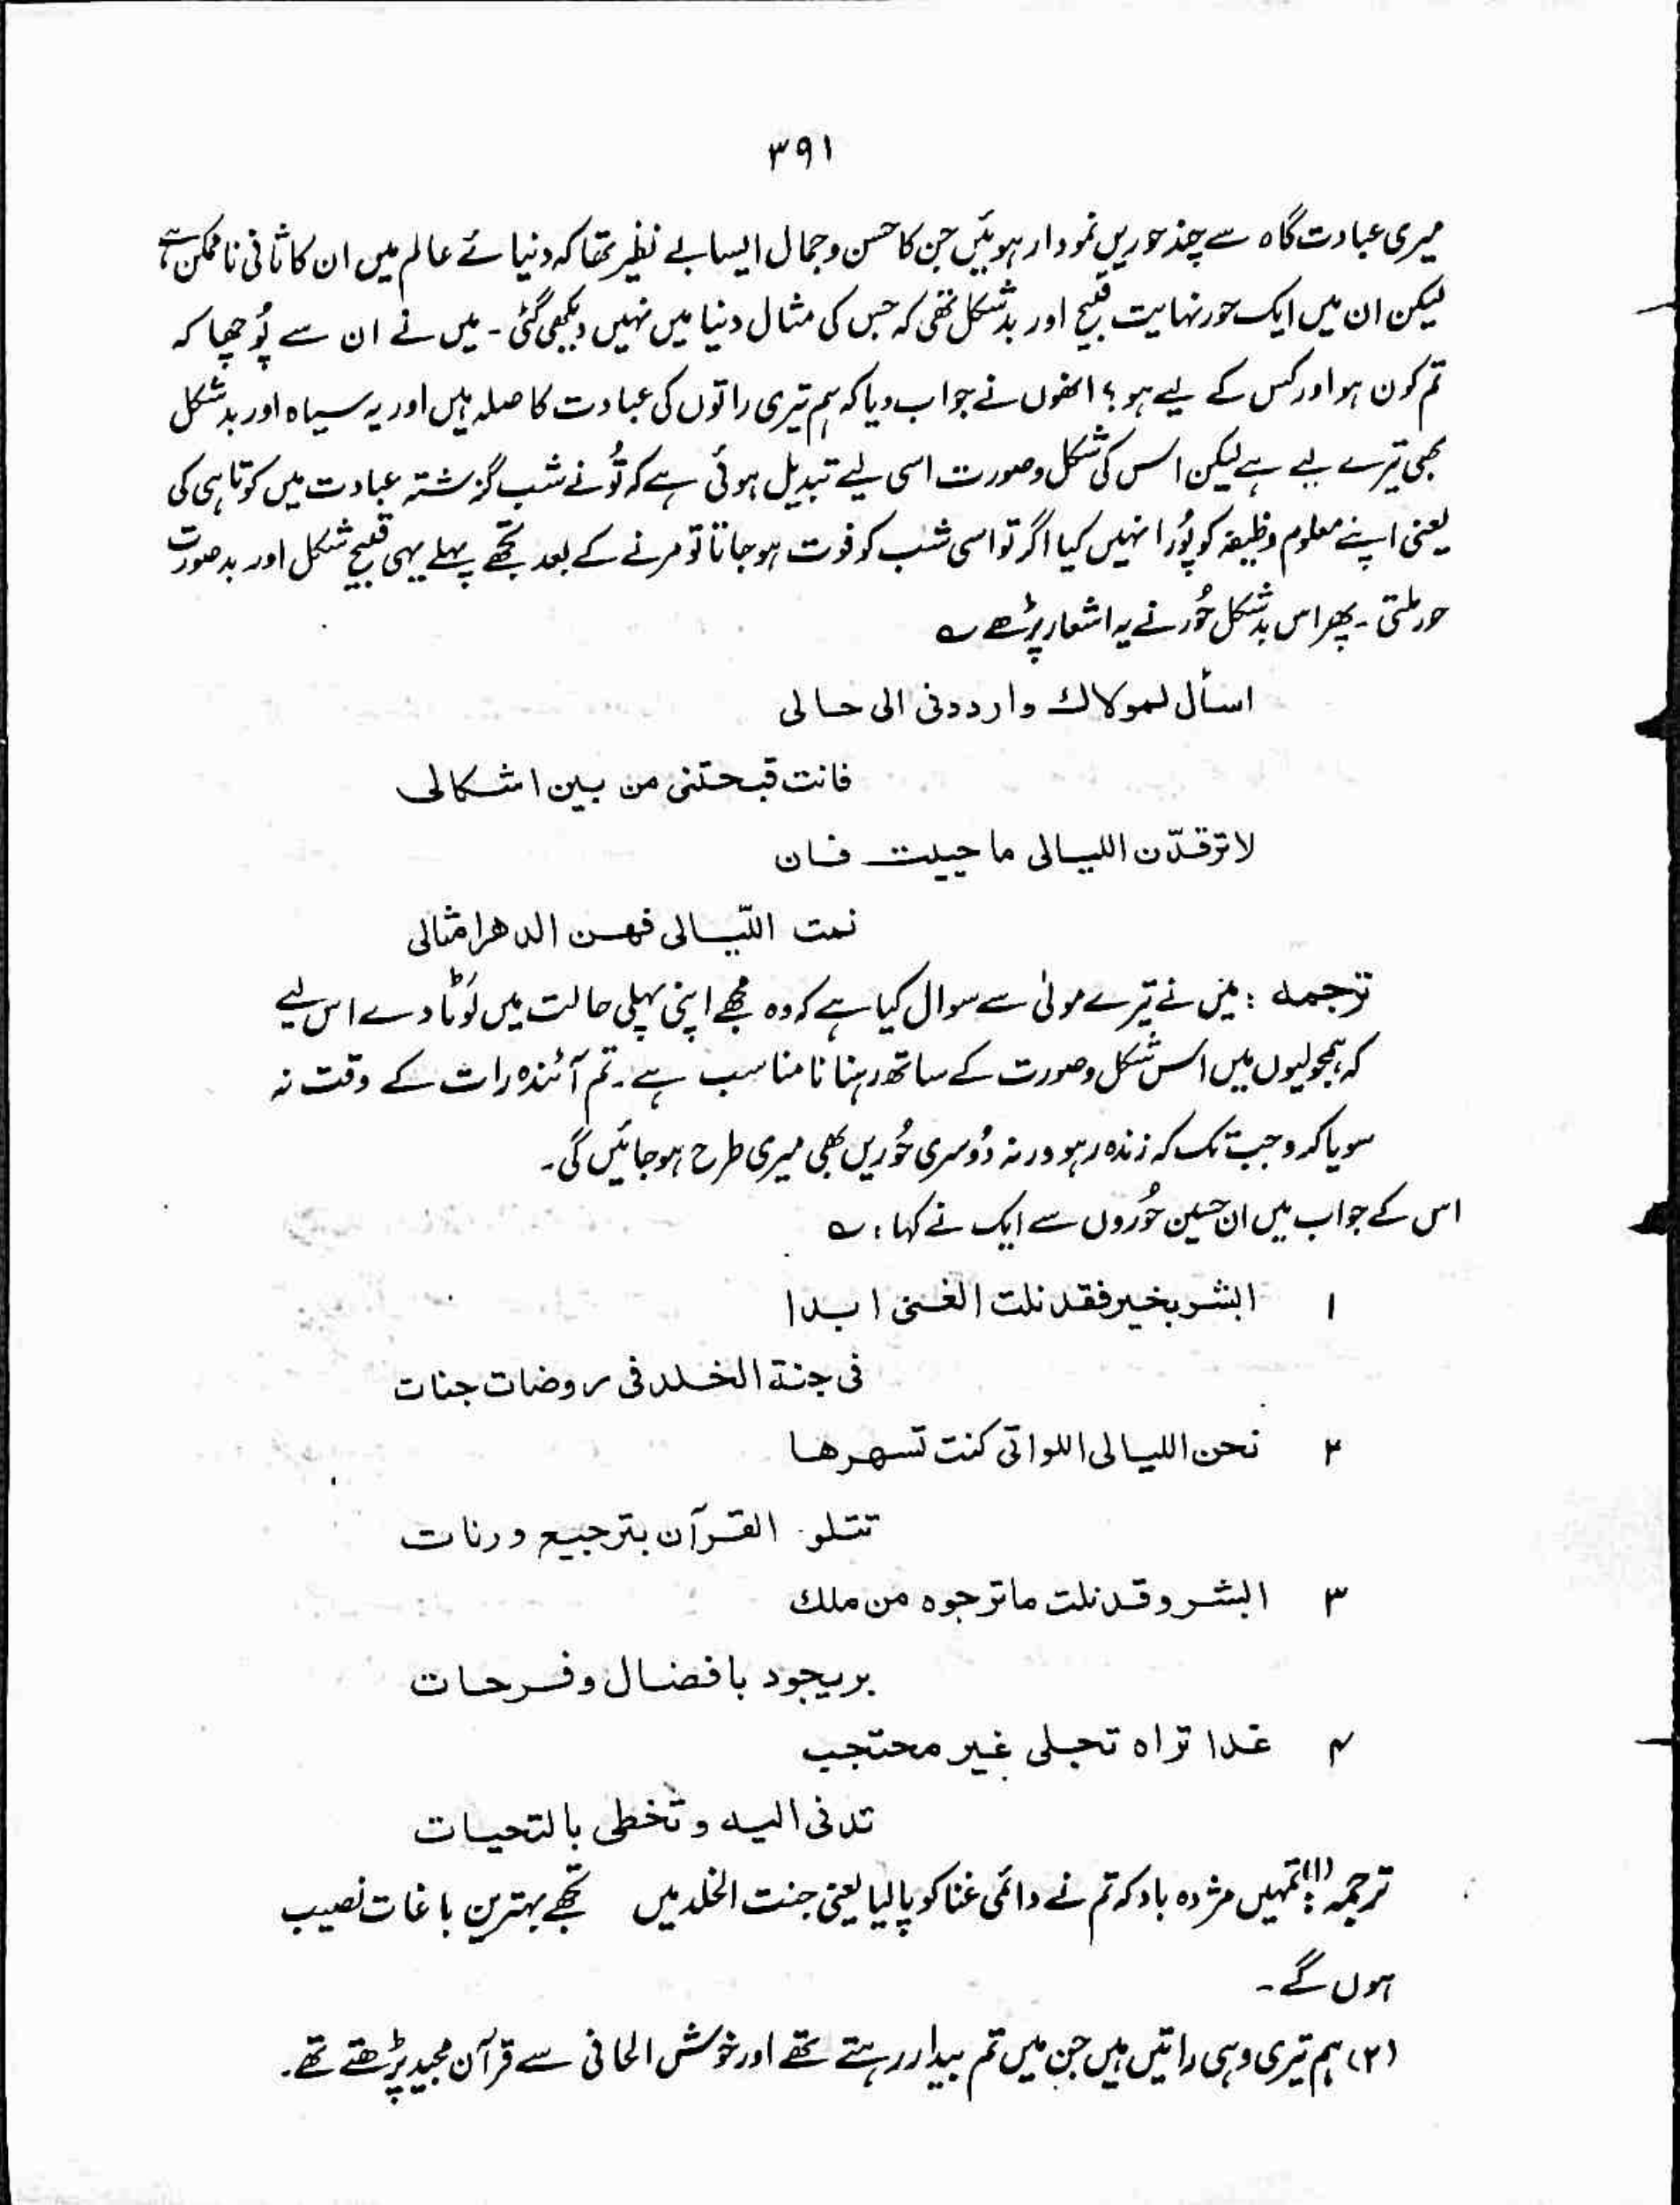 ۳۹۱
میری عبادت گاہ سے چند حوریں نمودار ہوئیں جن کا حسن و جمال ایسا بے نظیر تھا کہ دنیائے عالم میں ان کا ثانی ناممکن ہے
لیکن ان میں ایک حور نہایت قبیح اور بدشکل تھی کہ جس کی مثال دنیا میں نہیں دیکھی گئی ۔ میں نے ان سے پُوچھا کہ
تم کون ہو اور کس کے لیے ہو ؟ انھوں نے جواب دیا کہ ہم تیری راتوں کی عبادت کا صلہ ہیں اور یہ سیاہ اور بدشکل
بھی تیرے لیے ہے لیکن اس کی شکل و صورت اسی لیے تبدیل ہوئی ہے کہ تُو نے شب گزشتہ عبادت میں کوتاہی کی
یعنی اپنے معلوم وظیفہ کو پُورا نہیں کیا اگر تو اسی شب کو فوت ہو جاتا تو مرنے کے بعد تجھے پہلے یہی قبیح شکل اور بدصورت
حور ملتی ۔ پھر اس بدشکل حُور نے یہ اشعار پڑھے ؎
اسأل لمولاك وارددنی الی حالی
فانت قبحتنی من بین اشکالی
لا ترقدّن اللیالی ما حییت فان
نمت اللّیالی فهن الدهر امثالی
ترجمہ : میَں نے تیرے مولیٰ سے سوال کیا ہے کہ وہ مجھے اپنی پہلی حالت میں لَوٹا دے اس لیے
کہ ہمجولیوں میں اس شکل و صورت کے ساتھ رہنا نامناسب ہے ۔ تم آئندہ رات کے وقت نہ
سویا کرو جب تک کہ زندہ رہو ورنہ دُوسری حُوریں بھی میری طرح ہو جائیں گی ۔
اس کے جواب میں ان حسین حُوروں سے ایک نے کہا : ؎
۱ ابشر بخیر فقد نلت الغنی ابدا
فی جنة الخلد فی روضات جنات
۲ نحن اللیالی اللواتی کنت تسهرها
تتلو القرآن بترجیع ورنات
۳ ابشر وقد نلت ما ترجوه من ملك
بر یجود بافضال وفرحات
۴ غدا تراه تجلی غیر محتجب
تدنی الیه وتخطی بالتحیات
ترجمہ : (۱) تمہیں مژدہ باد کہ تم نے دائمی غنا کو پا لیا یعنی جنت الخلد میں تجھے بہترین باغات نصیب
ہوں گے ۔
(۲) ہم تیری وہی راتیں ہیں جن میں تم بیدار رہتے تھے اور خوش الحانی سے قرآن مجید پڑھتے تھے ۔